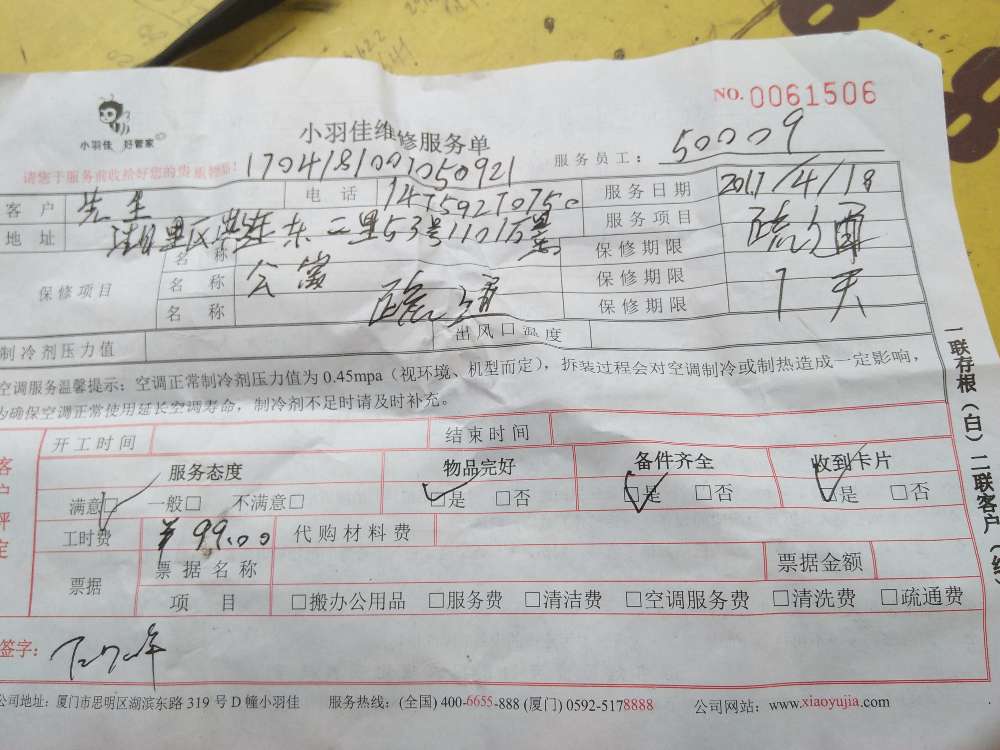 NO. 0061506
小羽佳 好管家
小羽佳维修服务单
服务员工: 50009
请您于服务前收给好您的贵重物品!
170418100
客户 先生 电话 服务日期 2017/4/18
地址 湖里区 东二里53号1101 服务项目 疏通
保修项目 名称 保修期限
名称 公寓 疏通 保修期限 1天
名称 保修期限
制冷剂压力值 出风口温度
空调服务温馨提示:空调正常制冷剂压力值为0.45mpa(视环境、机型而定),拆装过程会对空调制冷或制热造成一定影响,
为确保空调正常使用延长空调寿命,制冷剂不足时请及时补充。
一联存根(白)二联客户(红
客户评定
开工时间 结束时间
服务态度 物品完好 备件齐全 收到卡片
满意□ 一般□ 不满意□ □是 □否 □是 □否 □是 □否
工时费 ¥99.00 代购材料费
票据 票据名称 票据金额
项目 □搬办公用品 □服务费 □清洁费 □空调服务费 □清洗费 □疏通费
签字:
公司地址:厦门市思明区湖滨东路319号D幢小羽佳 服务热线:(全国) 400-6655-888 (厦门) 0592-5178888 公司网站:www.xiaoyujia.com